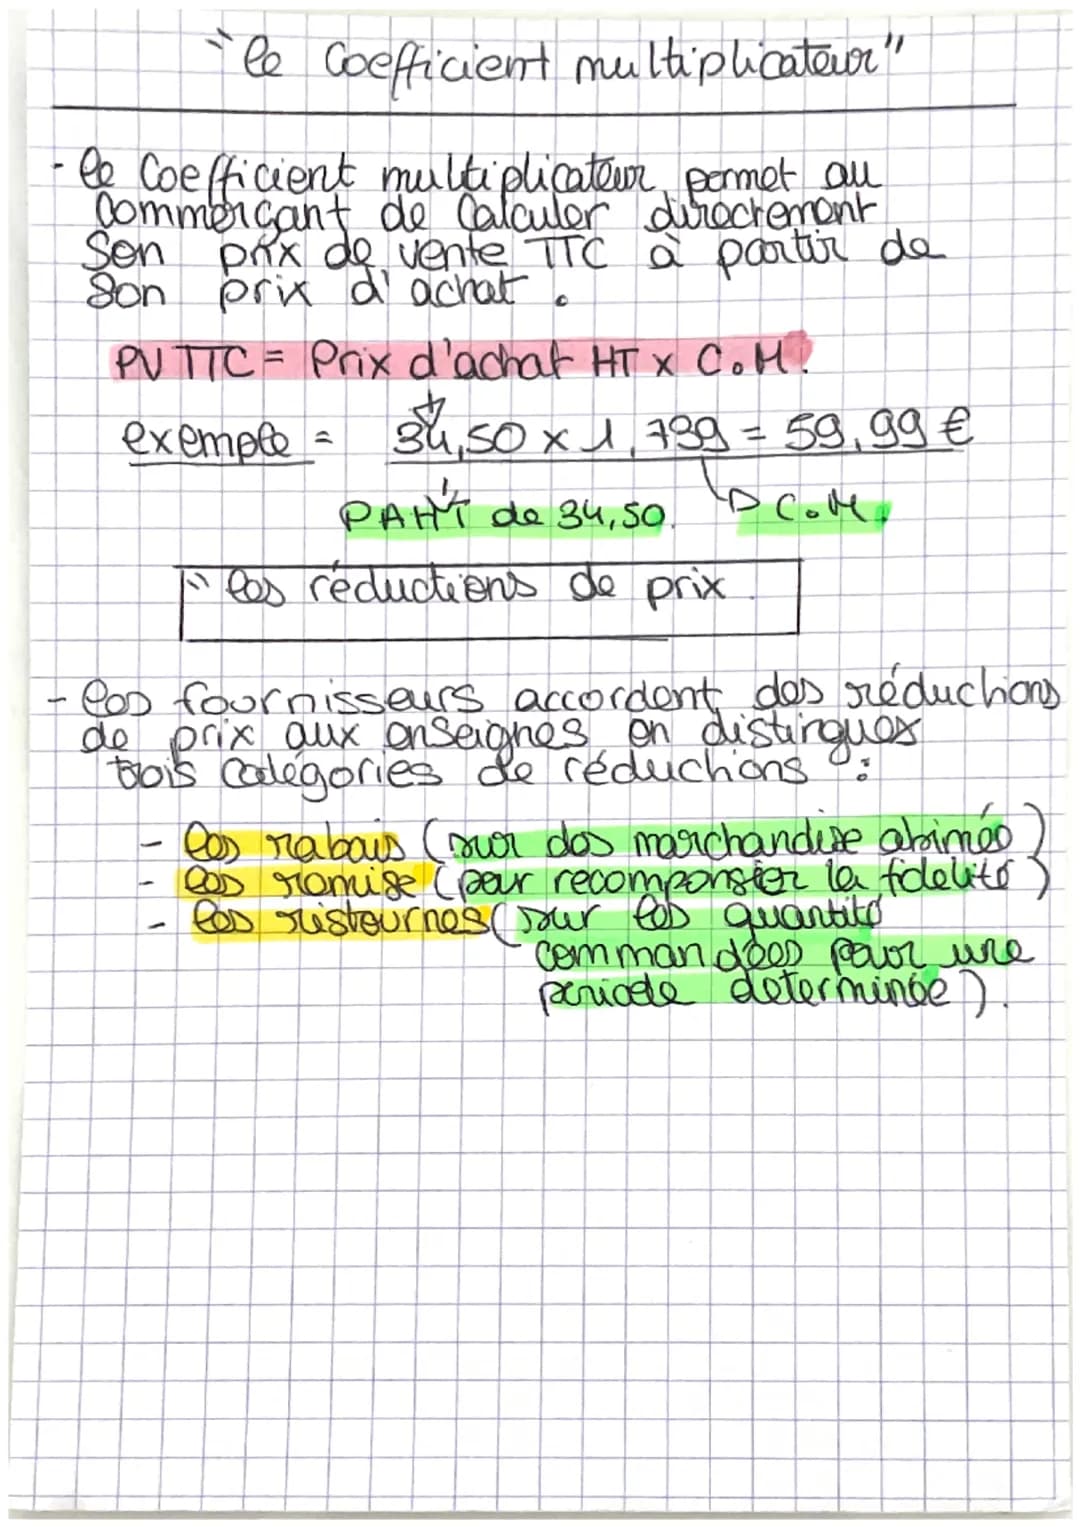 "le Coefficient multiplicateur"
- le Coefficient multiplicateur permet au
Commerçant de Calculer directement
Son prix de vente TTC à partir de
Son prix d'achat.
PV TTC = Prix d'achat HT x C.M.
exemple = 34,50 x 1,739 = 59,99 €
PAHT de 34,50. C.M.
" les réductions de prix
- les fournisseurs accordent des réductions
de prix aux enseignes on distingues
trois catégories de réductions :
- les rabais (sur des marchandise abimée)
- les remise (pour recompenser la fidelité)
- les ristournes (sur les quantité
commandées pour une
periode determinée).